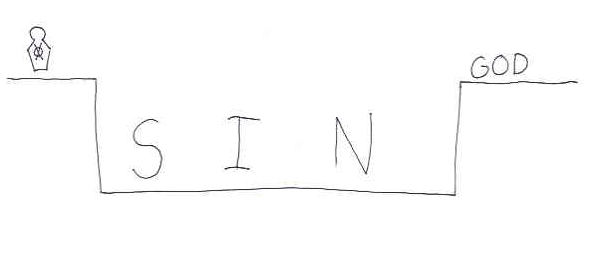 GOD
S I N